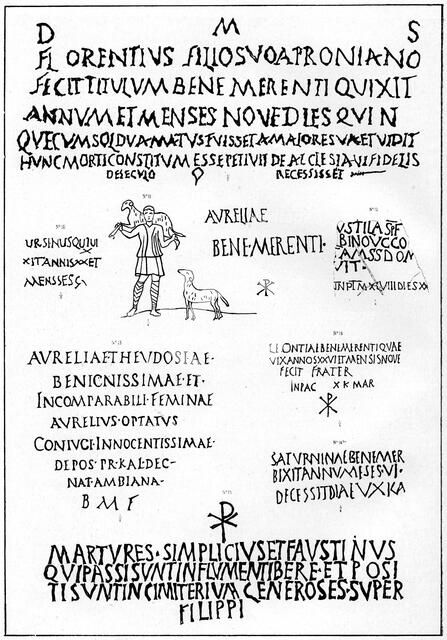 D M S
FLORENTIVS FILIO SVO APRONIANO
FECIT TITVLVM BENE MERENTI QVIXIT
ANNVM ET MENSES NOVE DIES QVIN
QVE CVM SOLDV AMATVS FVISSET A MAIORE SVA ET VIDIT
HVNC MORTI CONSTITVM ESSE PETIVIT DE AECLESIA VT FIDELIS
DE SECVLO RECESSISSET
VRSINVS QVI VI
XIT ANNIS XX ET
MENSSES
AVRELIAE
BENE·MERENTI·
VSTILA
BINOVCCO
VIT
INPTM
AVRELIAE THEVDOSIAE·
BENIGNISSIMAE·ET·
INCOMPARABILI·FEMINAE
AVRELIVS·OPTATVS
CONIVGI·INNOCENTISSIMAE·
DEPOS·PR·KAL·DEC-
NAT·AMBIANA·
B M F
LEONTIAE BENEMERENTI QVAE
VIXANNOS XXVII MENSIS NOVE
FECIT FRATER
IN PAC X K MAR
SATVRNINAE BENEMER
BIXIT ANNV MESES VI·
DECESSIT DIAE V X KA
MARTVRES·SIMPLICIVS ET FAVSTINVS
QVI PASSI SVNT IN FLVMEN TIBERE·ET POSI
TI SVNT IN CIMITERIVM GENEROSES·SVPER
FILIPPI